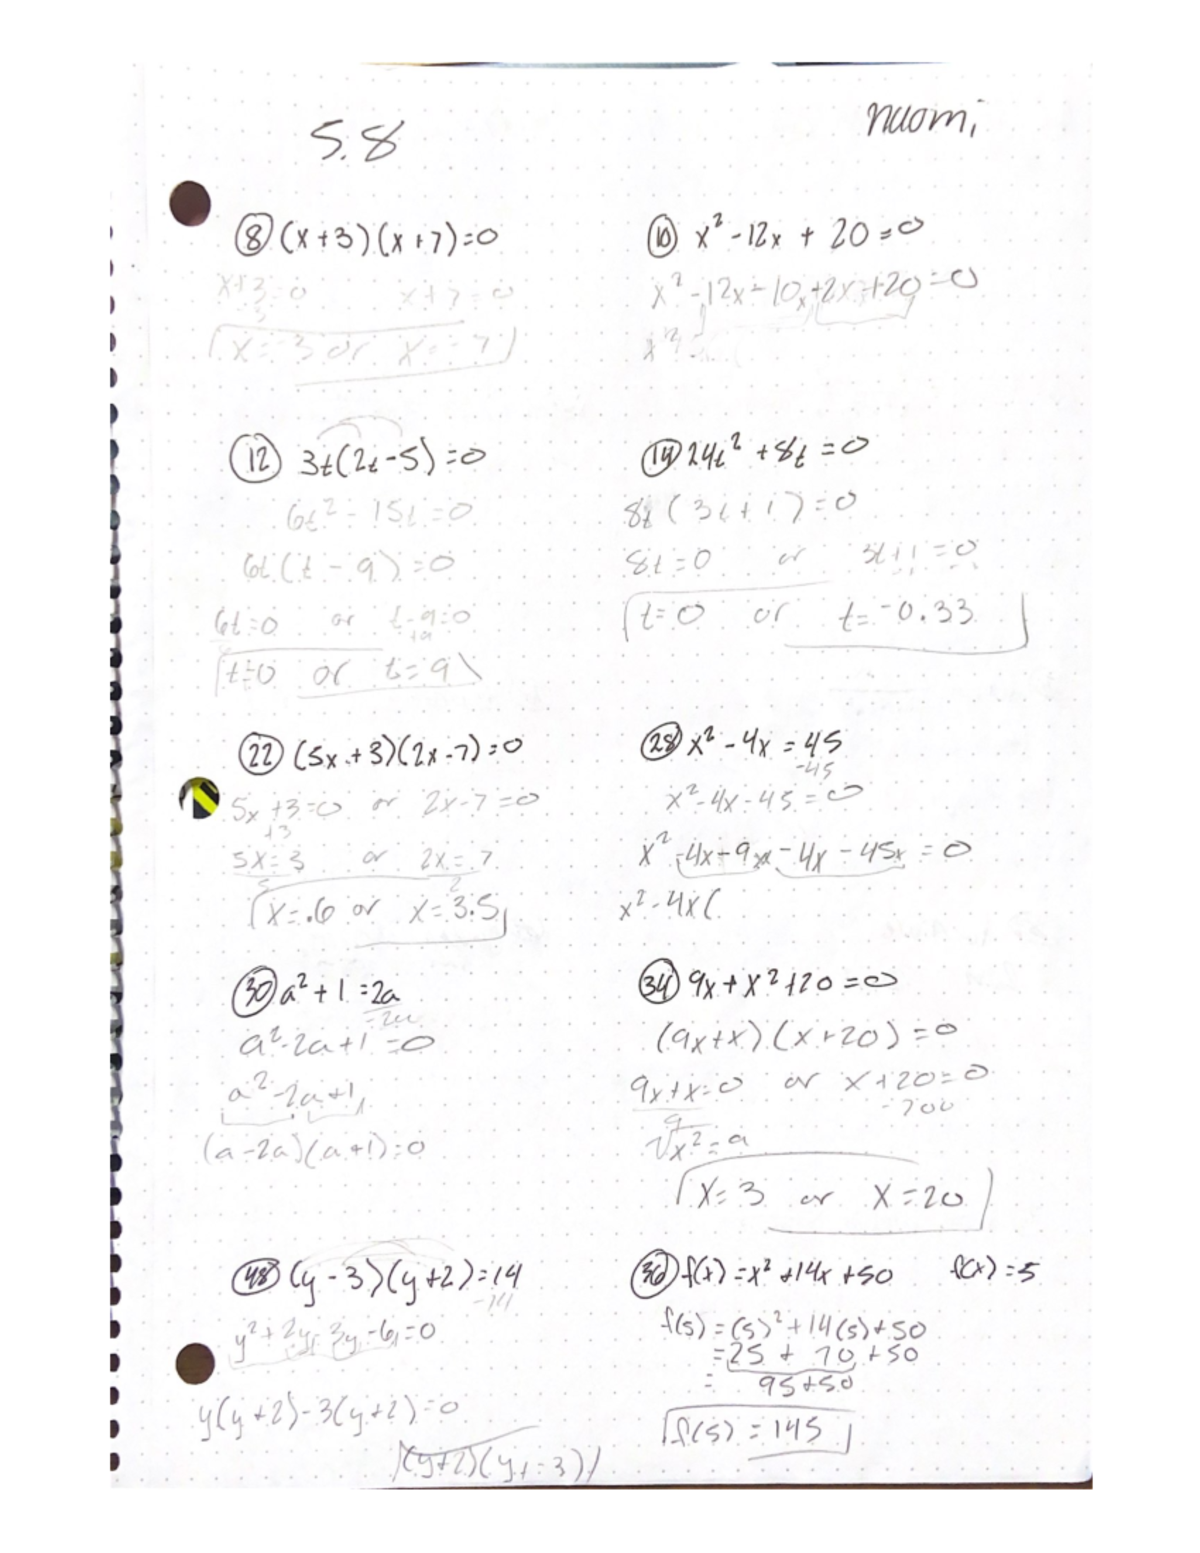 5.8
naomi
⑧ (x+3)(x+7)=0
x+3=0 x+7=0
3
x=-3 or x=-7
⑩ x²-12x + 20=0
x²-12x-10x+2x+20=0
x²
⑫ 3t(2t-5)=0
6t²-15t=0
6t(t-9)=0
6t=0 or t-9=0
+9
t=0 or t=9
⑭ 24t²+8t=0
8t(3t+1)=0
8t=0 or 3t+1=0
t=0 or t=-0.33
㉒ (5x+3)(2x-7)=0
5x+3=0 or 2x-7=0
+3
5x=3 or 2x=7
5 2
x=.6 or x=3.5
㉘ x²-4x=45
-45
x²-4x-45=0
x²-4x-9x-4x-45x=0
x²-4x(
㉚ a²+1=2a
-2a
a²-2a+1=0
a²-2a+1
(a-2a)(a+1)=0
㉞ 9x+x²+20=0
(9x+x)(x+20)=0
9x+x=0 or x+20=0
9
√x²=9
x=3 or x=20
㊽ (y-3)(y+2)=14
-14
y²+2y-3y-6=0
y(y+2)-3(y+2)=0
(y+2)(y+-3)
㊱ f(x)=x²+14x+50 f(x)=5
f(5)=(5)²+14(5)+50
=25+70+50
= 95+50
f(5)=145